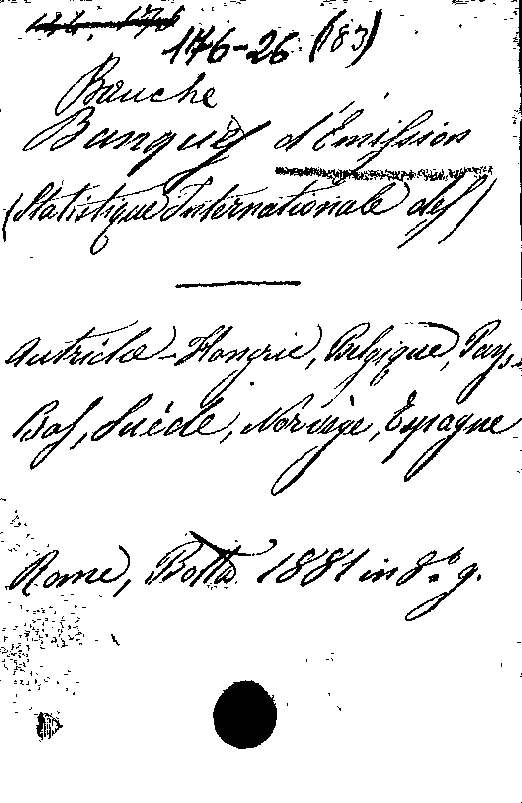 176-26 (83)
Bauche
Banques d'Émission
(Statistique Internationale des)
Autriche-Hongrie, Belgique, Pays,
Bas, Suède, Norvège, Espagne
Rome, Botta 1881 in 8.º g.